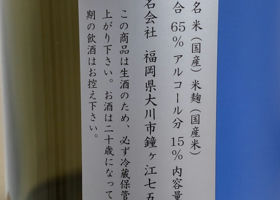 名 米（国産）米麹（国産米）
合 65％ アルコール分 15％ 内容量
名会社 福岡県大川市鐘ヶ江七五
この商品は生酒のため、必ず冷蔵保管
上がり下さい。お酒は二十歳になって
期の飲酒はお控え下さい。